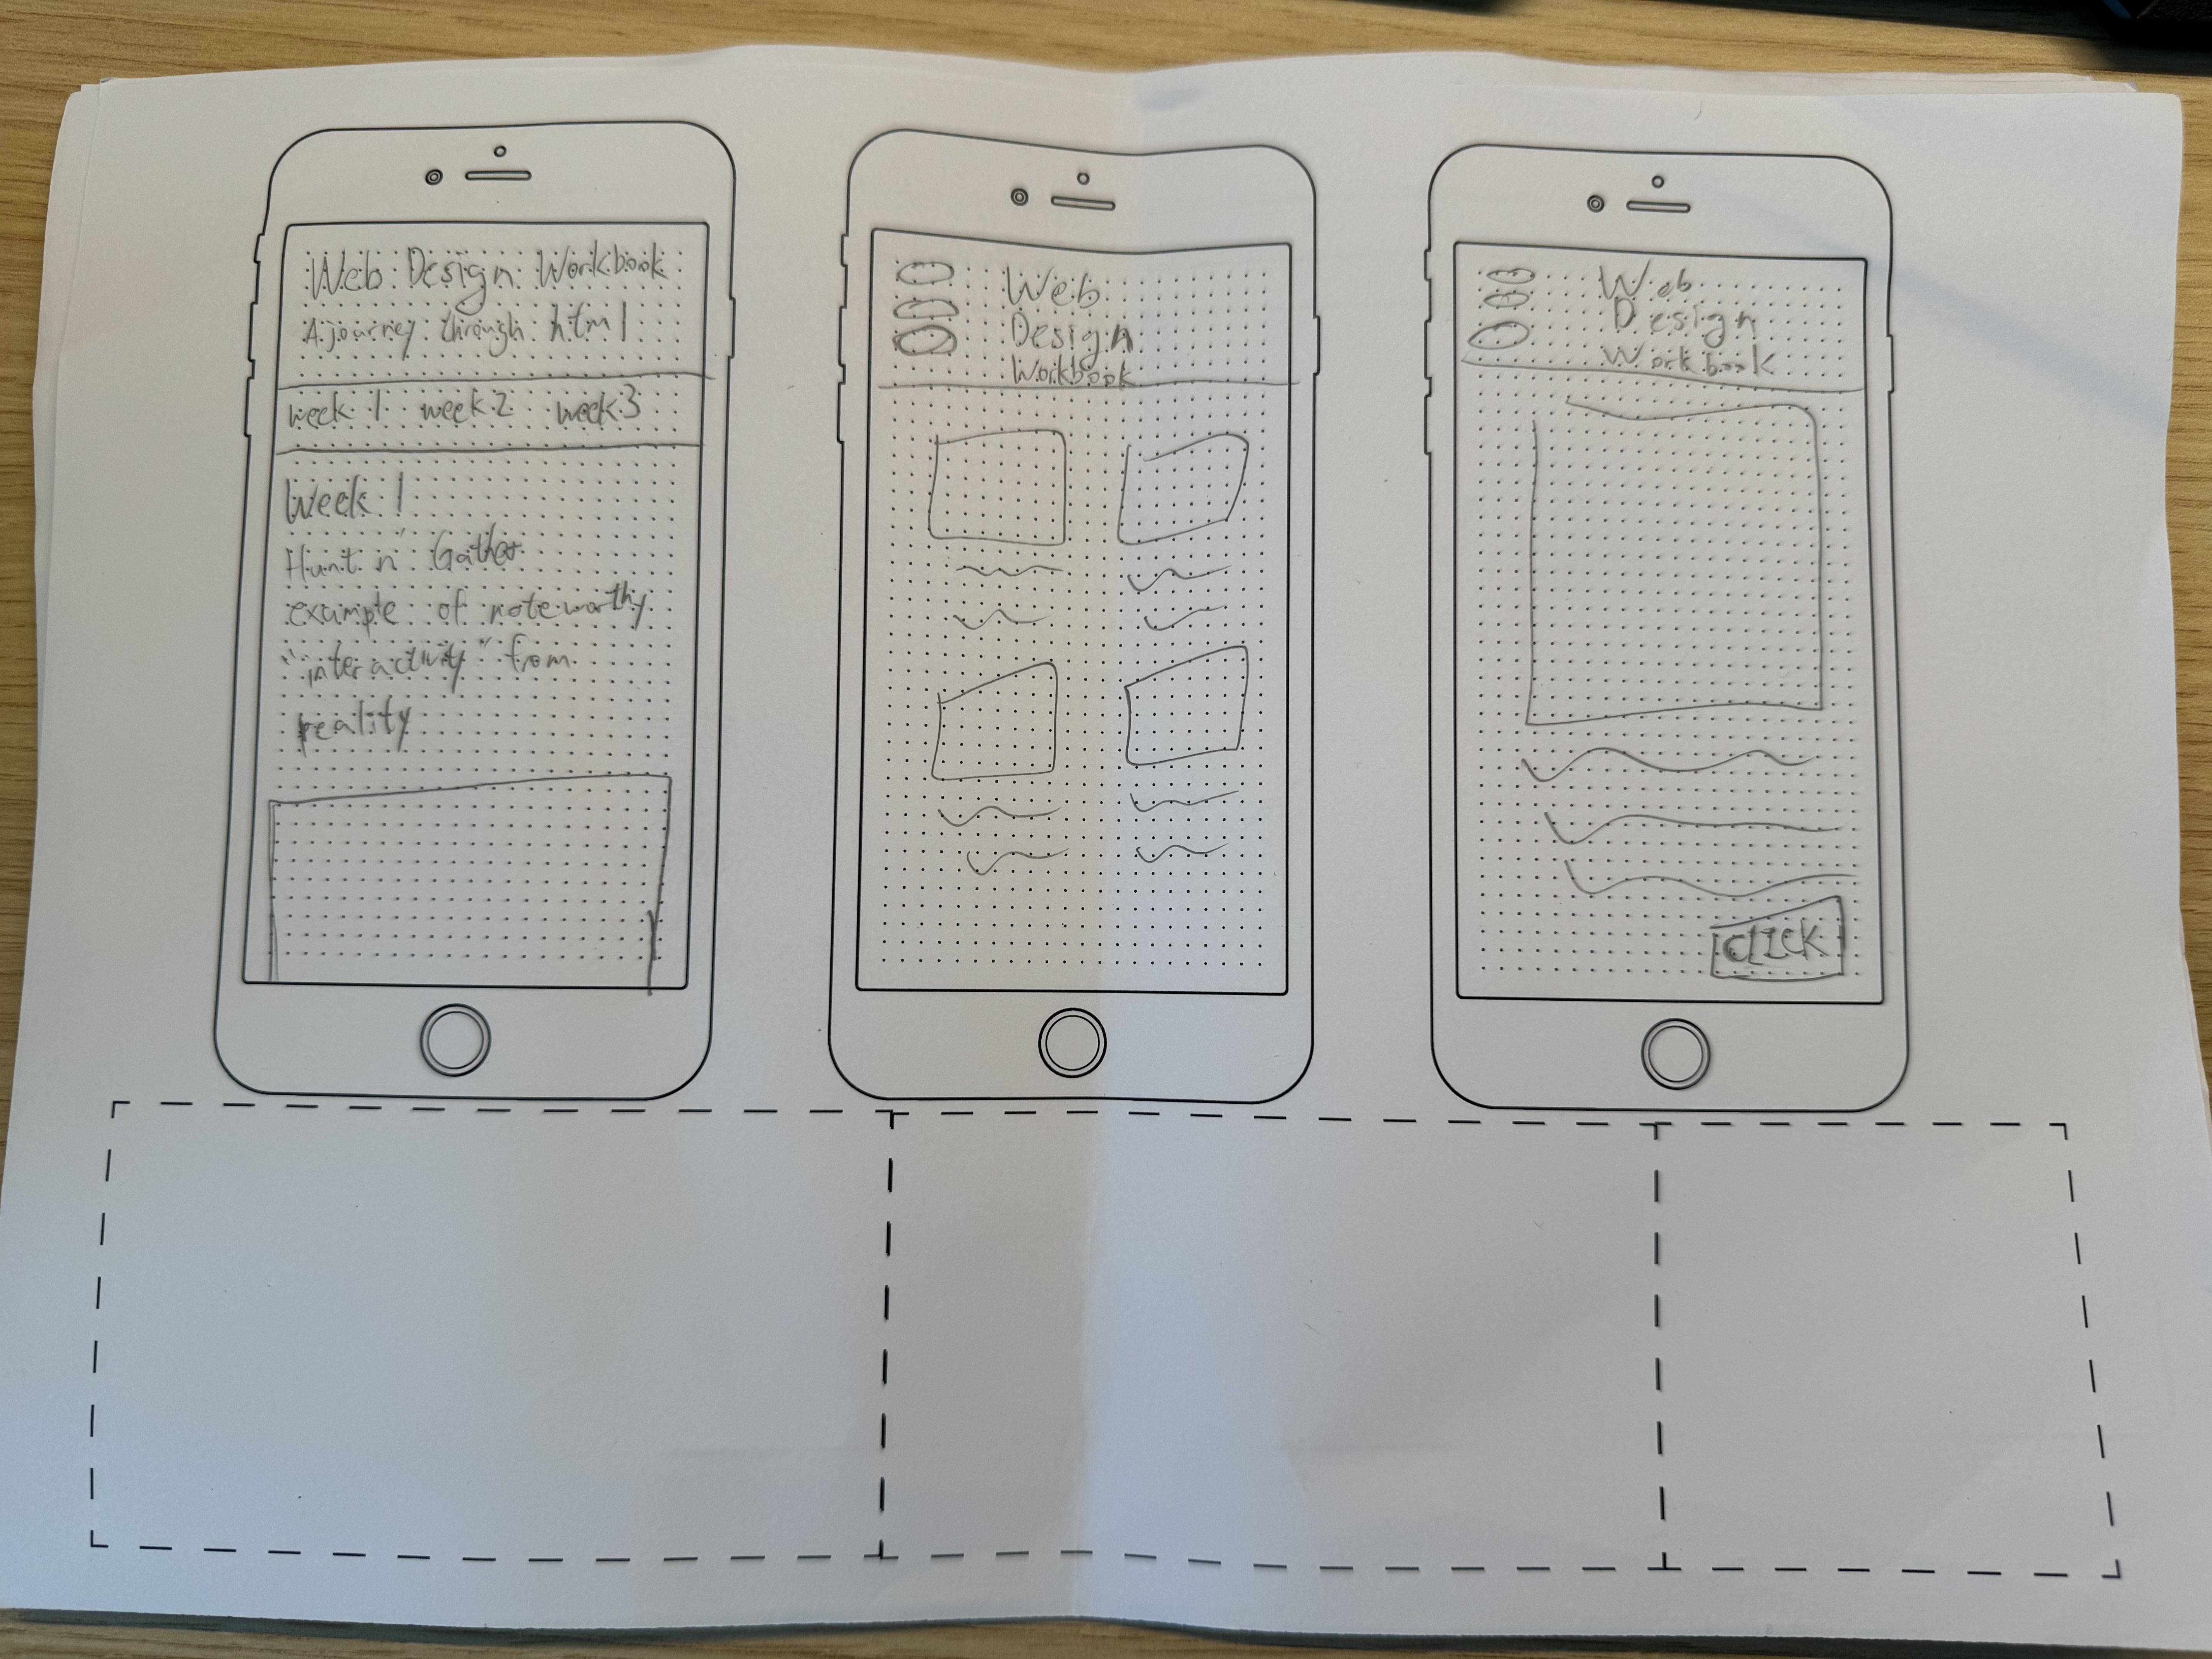 Web Design Workbook
A journey through html
week 1 week 2 week 3
Week 1
Hunt n' Gather
example of noteworthy
"interactivity" from
reality
Web
Design
Workbook
Web
Design
Workbook
CLICK